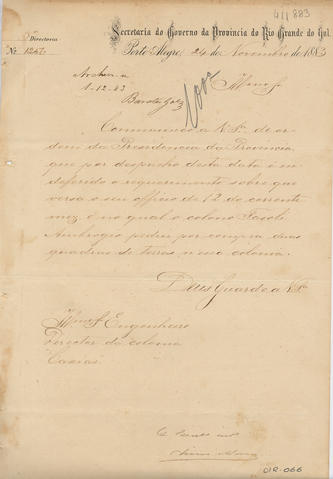 4/1883
Secretaria do Governo da Provincia do Rio Grande do Sul.
Directoria
Nº 1247
Porto Alegre, 24 de Novembro de 1883
Archive
1-12-83
Illmo Sr
Communico a V. Sa. de or-
dem da Presidencia da Provincia,
que por despacho desta data é in-
deferido o requerimento sobre que
versa o seu officio de 12 do corrente
mez, e no qual o colono Fasoli
Ambrogio pediu por compra duas
quadras de terras nessa colonia.
Deus Guarde a V. Sa.
Illmo Sr Engenheiro
Director da colonia
Caxias
OR-066